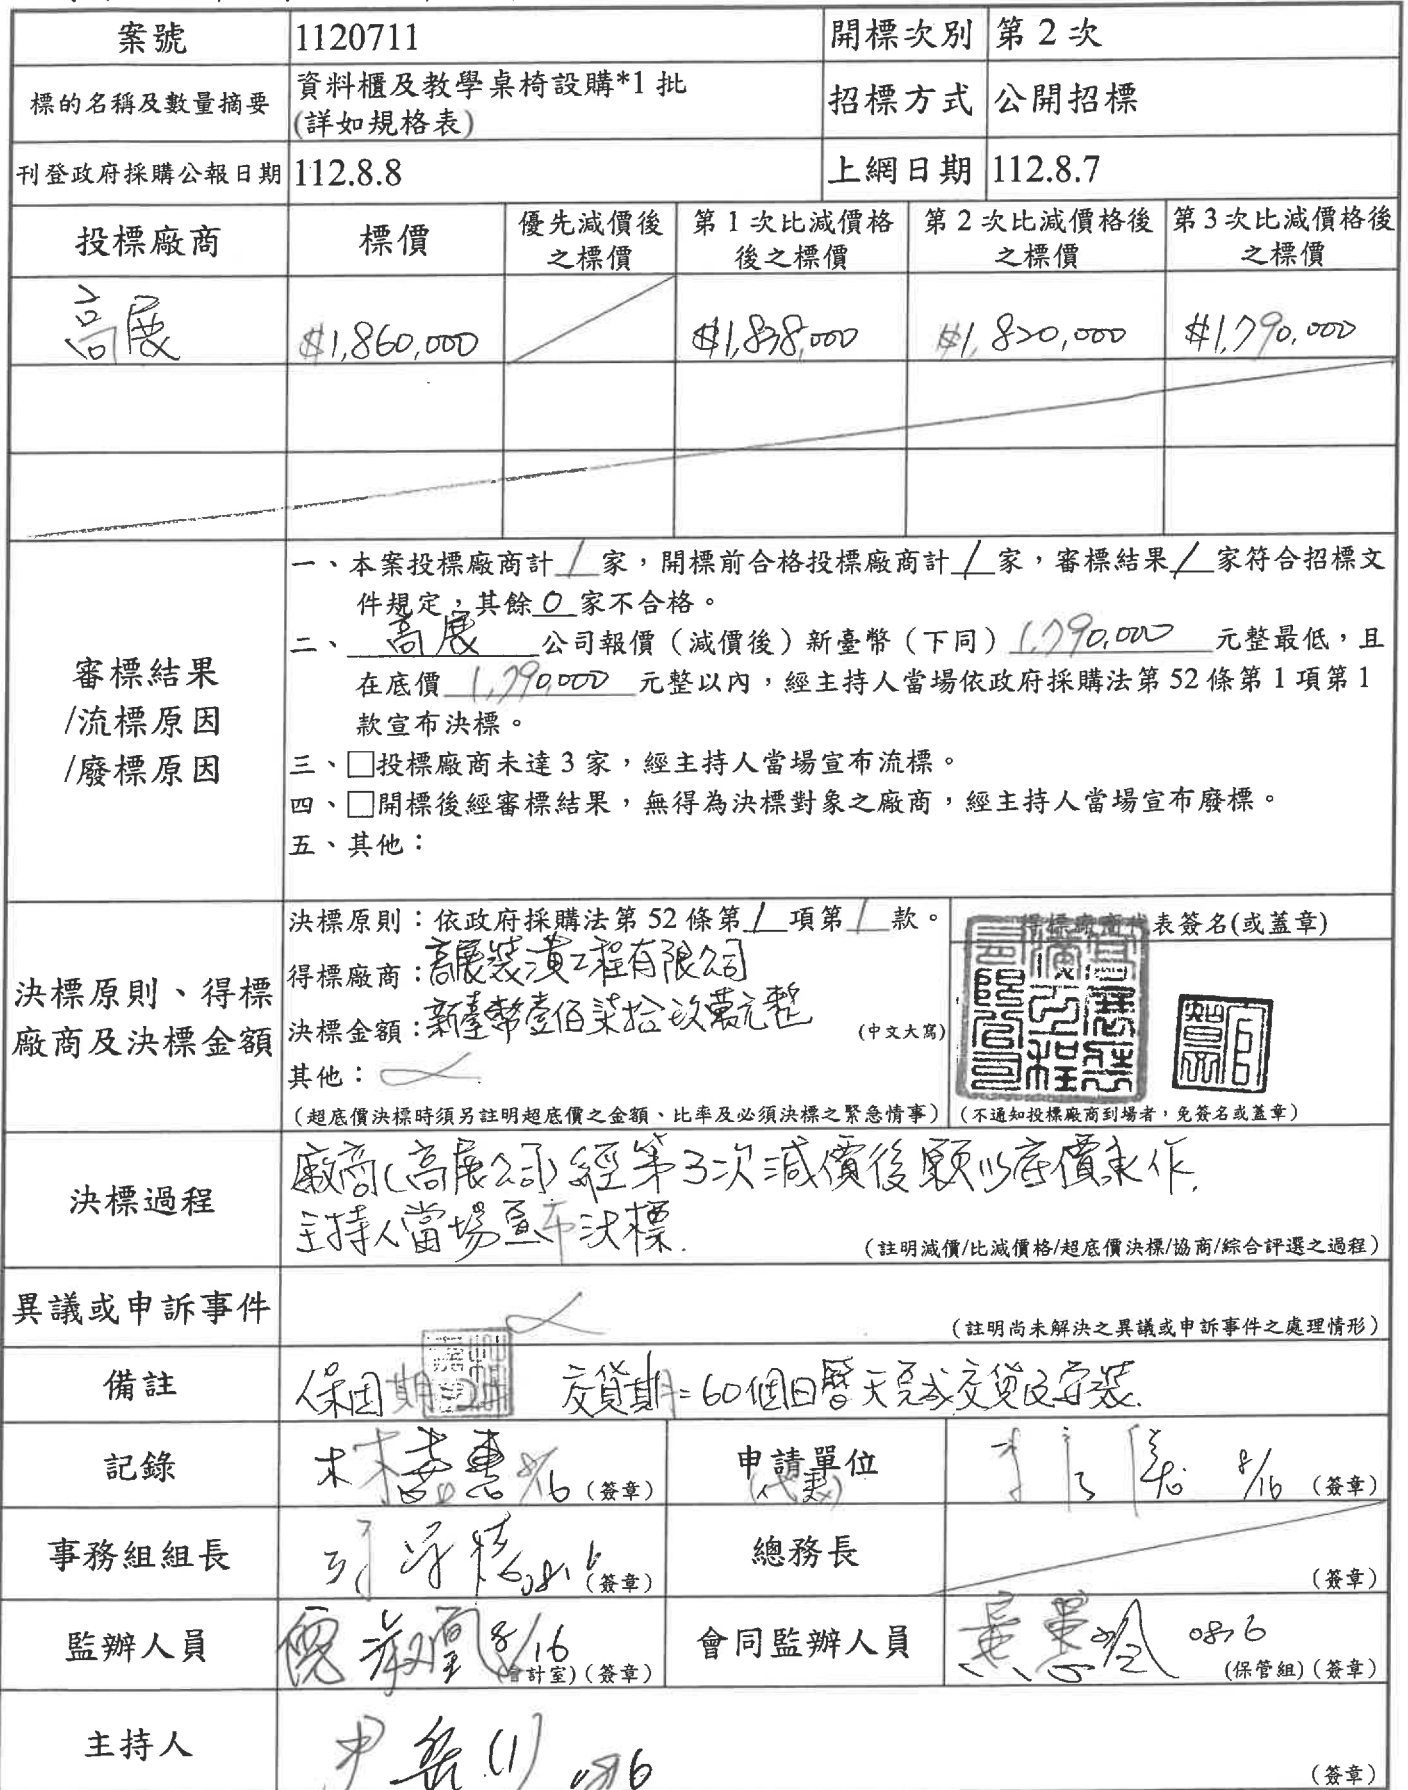 案號 1120711 開標次別 第2次
標的名稱及數量摘要 資料櫃及教學桌椅設購*1批 招標方式 公開招標
(詳如規格表)
刊登政府採購公報日期 112.8.8 上網日期 112.8.7
投標廠商 標價 優先減價後之標價 第1次比減價格後之標價 第2次比減價格後之標價 第3次比減價格後之標價
高展 $1,860,000 $1,838,000 $1,820,000 $1,790,000
審標結果
/流標原因
/廢標原因
一、本案投標廠商計1家，開標前合格投標廠商計1家，審標結果1家符合招標文
件規定，其餘0家不合格。
二、高展公司報價（減價後）新臺幣（下同）1,790,000元整最低，且
在底價1,790,000元整以內，經主持人當場依政府採購法第52條第1項第1
款宣布決標。
三、□投標廠商未達3家，經主持人當場宣布流標。
四、□開標後經審標結果，無得為決標對象之廠商，經主持人當場宣布廢標。
五、其他：
決標原則、得標
廠商及決標金額
決標原則：依政府採購法第52條第1項第1款。
得標廠商：高展裝潢工程有限公司
決標金額：新臺幣壹佰柒拾玖萬元整 (中文大寫)
其他：
（超底價決標時須另註明超底價之金額、比率及必須決標之緊急情事）
得標廠商代表簽名(或蓋章)
（不通知投標廠商到場者，免簽名或蓋章）
決標過程
廠商(高展公司)經第3次減價後願以底價承作,
主持人當場宣布決標.
（註明減價/比減價格/超底價決標/協商/綜合評選之過程）
異議或申訴事件
（註明尚未解決之異議或申訴事件之處理情形）
備註 保固期 交貨期=60個日曆天完成交貨及安裝.
記錄 8/16 (簽章) 申請單位 (代表) 8/16 (簽章)
事務組組長 (簽章) 總務長 (簽章)
監辦人員 8/16 (會計室)(簽章) 會同監辦人員 0816 (保管組)(簽章)
主持人 0816 (簽章)